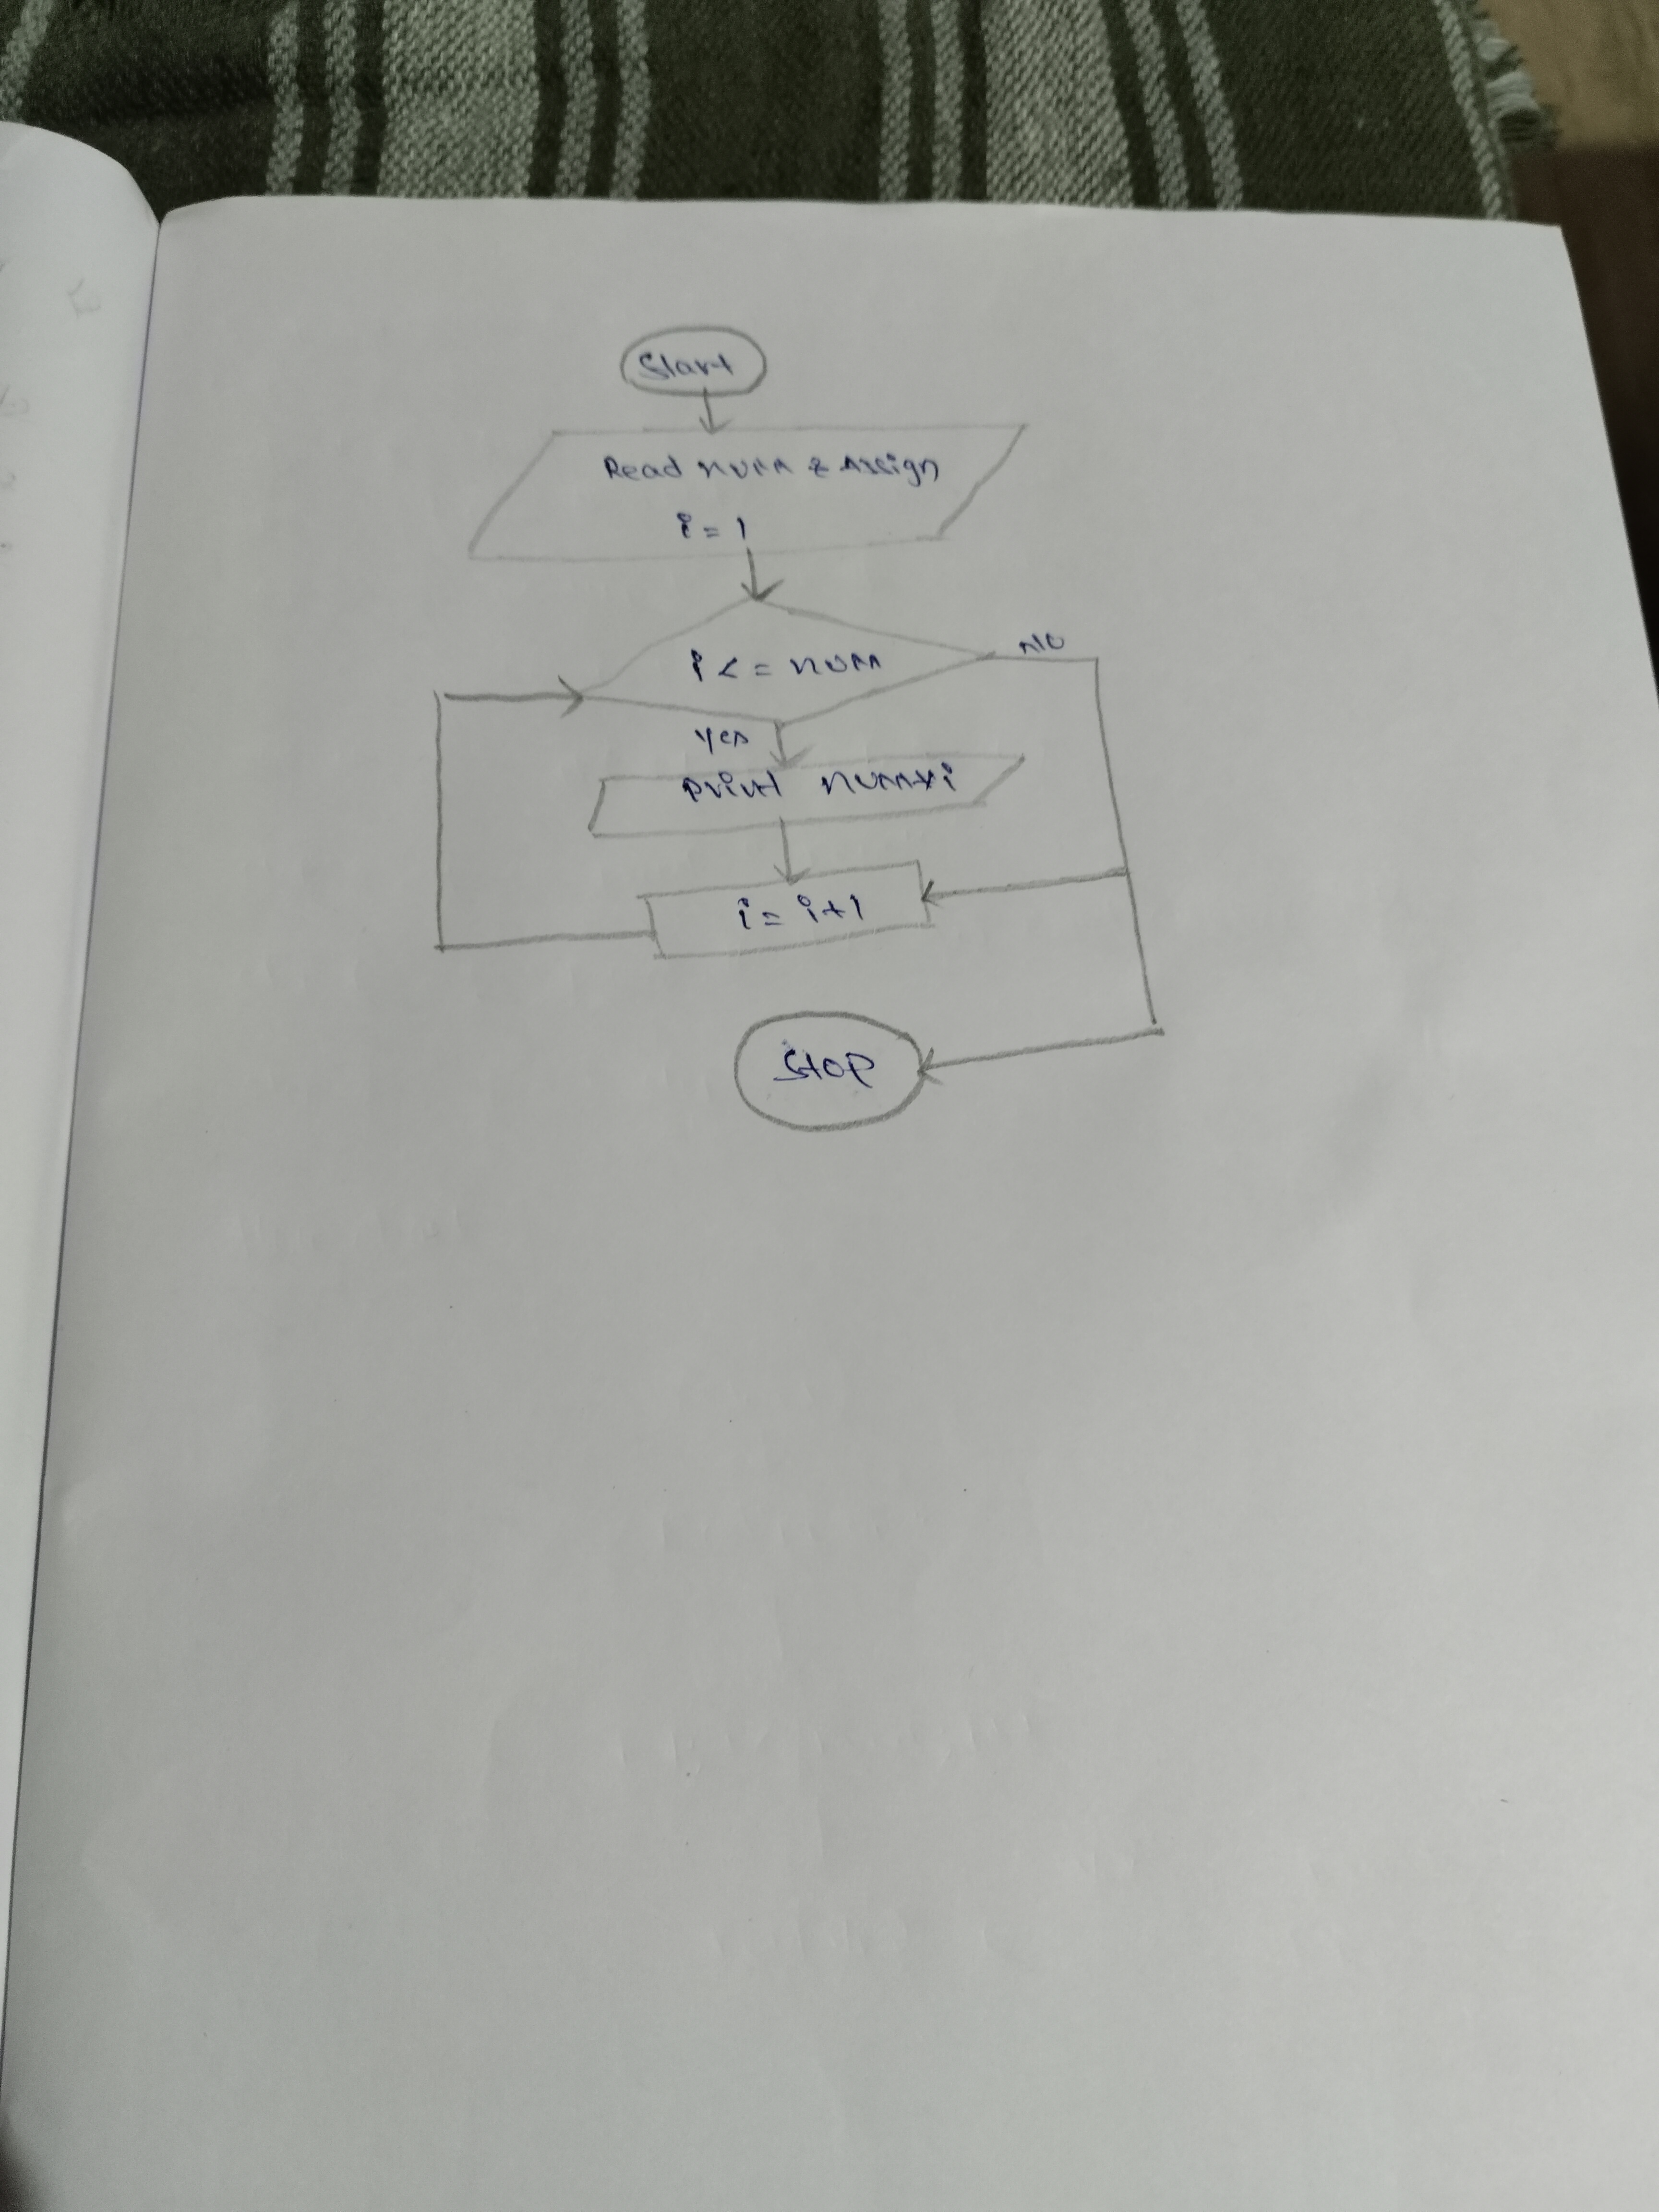 Start
Read num & Assign
i = 1
i <= num
no
yes
print num*i
i = i+1
Stop